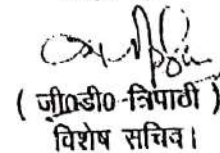 ( जी0डी0 त्रिपाठी )
विशेष सचिव।